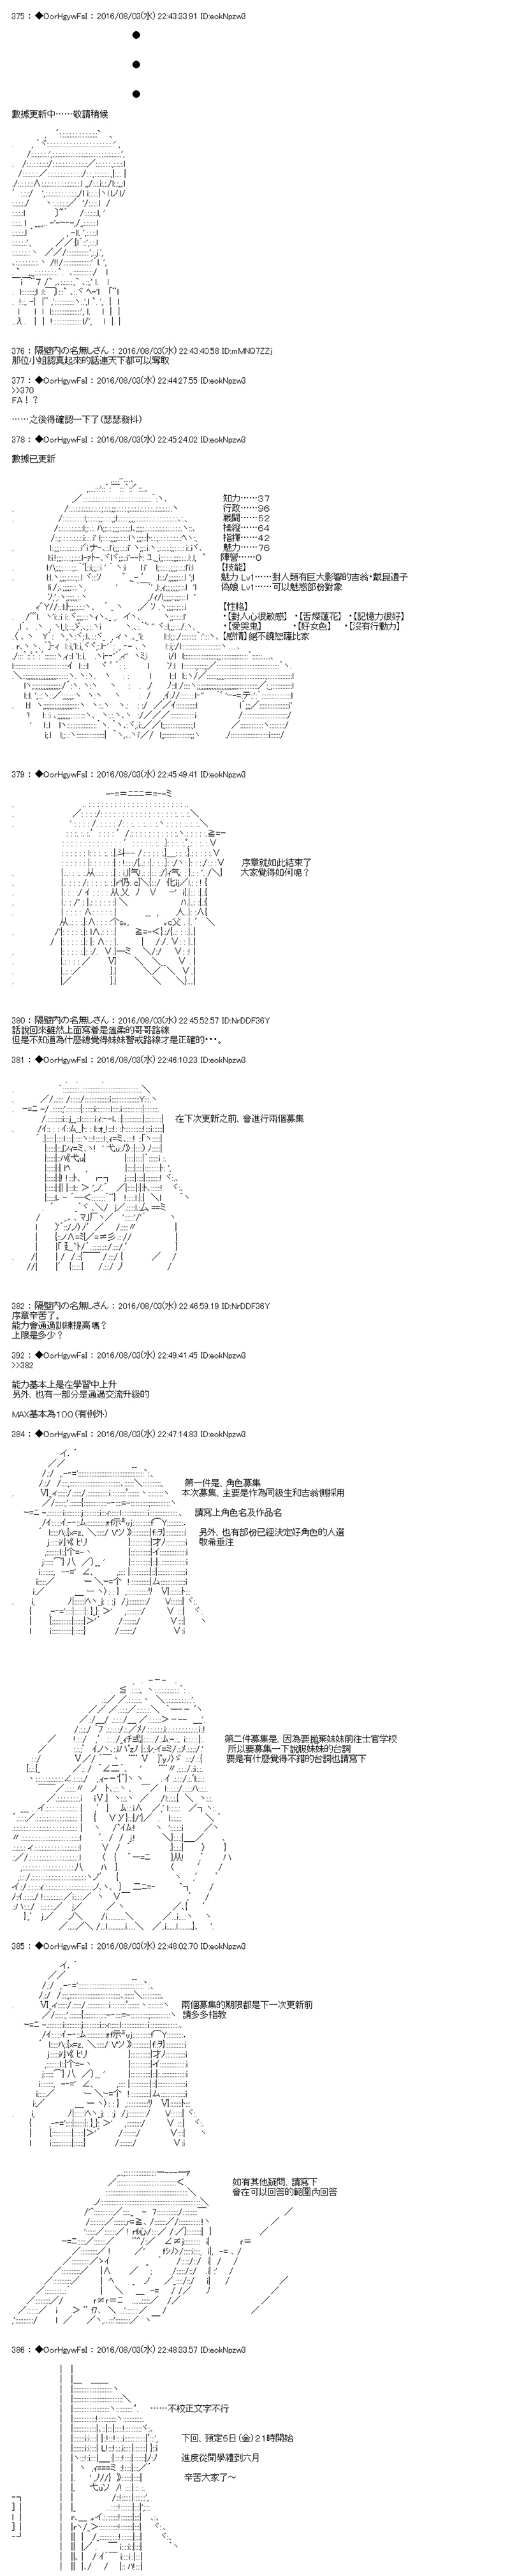 375 : ◆OorHgywFsI : 2016/08/03(水) 22:43:33.91 ID:eokNpzw3
數據更新中……敬請稍候
376 : 隔壁内の名無しさん : 2016/08/03(水) 22:43:40.58 ID:mMNQ7ZZj
那位小姐認真起來的話連天下都可以奪取
377 : ◆OorHgywFsI : 2016/08/03(水) 22:44:27.55 ID:eokNpzw3
>>370
FA！？
……之後得確認一下了(瑟瑟發抖)
378 : ◆OorHgywFsI : 2016/08/03(水) 22:45:24.02 ID:eokNpzw3
數據已更新
知力……37
行政……96
戰鬪……52
操縦……64
指揮……42
魅力……76
陣營……0
【技能】
魅力 Lv1……對人類有巨大影響的吉翁・戴昆遺子
偽娘 Lv1……可以魅惑部份對象
【性格】
・【對人心很敏感】 ・【舌燦蓮花】 ・【記憶力很好】
・【愛哭鬼】 ・【好女色】 ・【沒有行動力】
【感情】 絕不饒恕薩比家
379 : ◆OorHgywFsI : 2016/08/03(水) 22:45:49.41 ID:eokNpzw3
序章就如此結束了
大家覺得如何呢？
380 : 隔壁内の名無しさん : 2016/08/03(水) 22:45:52.57 ID:NrDDF36Y
話說回來雖然上面寫着是溫柔的哥哥路線
但是不知道為什麼總覺得妹妹警戒路線才是正確的・・・。
381 : ◆OorHgywFsI : 2016/08/03(水) 22:46:10.23 ID:eokNpzw3
在下次更新之前、會進行兩個募集
382 : 隔壁内の名無しさん : 2016/08/03(水) 22:46:59.19 ID:NrDDF36Y
序章辛苦了。
能力會通過訓練提高嗎？
上限是多少？
392 : ◆OorHgywFsI : 2016/08/03(水) 22:49:41.45 ID:eokNpzw3
>>382
能力基本上是在學習中上升
另外、也有一部分是通過交流升級的
MAX基本為100(有例外)
384 : ◆OorHgywFsI : 2016/08/03(水) 22:47:14.83 ID:eokNpzw3
第一件是、角色募集
本次募集、主要是作為同級生和吉翁側採用
請寫上角色名及作品名
另外、也有部份已經決定好角色的人選
敬希垂注
第二件募集是、因為要拋棄妹妹前往士官學校
所以要募集一下說服妹妹的台詞
要是有什麼覺得不錯的台詞也請寫下
385 : ◆OorHgywFsI : 2016/08/03(水) 22:48:02.70 ID:eokNpzw3
兩個募集的期限都是下一次更新前
請多多指教
如有其他疑問、請寫下
會在可以回答的範圍內回答
386 : ◆OorHgywFsI : 2016/08/03(水) 22:48:33.57 ID:eokNpzw3
……不校正文字不行
下回、預定5日(金)21時開始
進度從開學禮到六月
辛苦大家了～